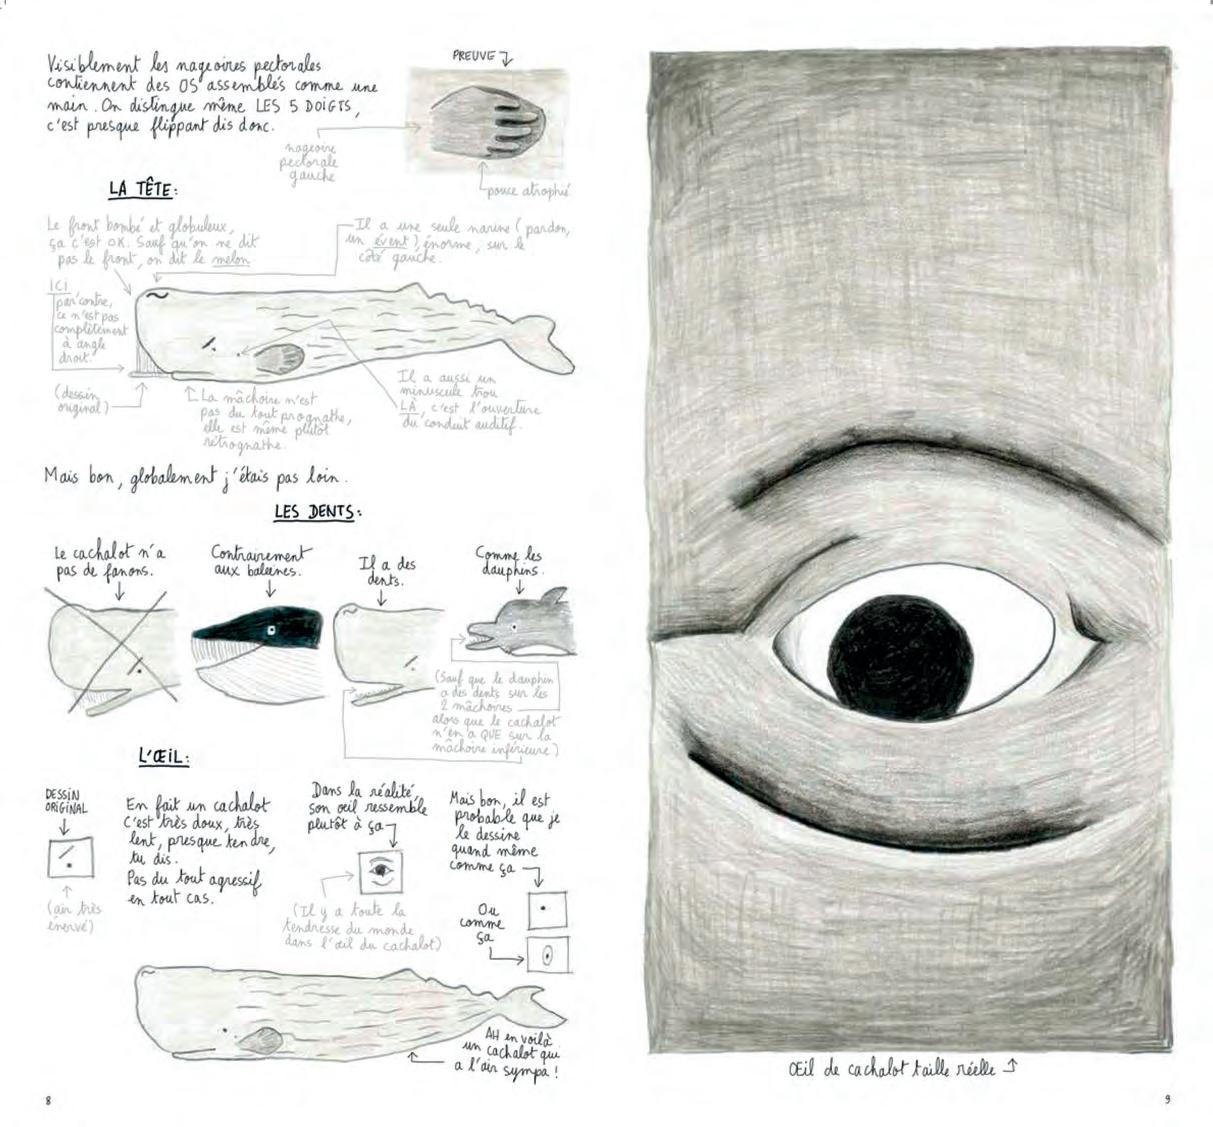 Visiblement les nageoires pectorales
contiennent des OS assemblés comme une
main. On distingue même LES 5 DOIGTS,
c'est presque flippant dis donc.
PREUVE
nageoire
pectorale
gauche
pouce atrophié
LA TÊTE:
Le front bombé et globuleux,
ça c'est OK. Sauf qu'on ne dit
pas le front, on dit le melon.
Il a une seule narine (pardon,
un évent), énorme, sur le
côté gauche.
ICI
par contre,
ce n'est pas
complètement
à angle
droit.
(dessin
original)
La mâchoire n'est
pas du tout prognathe,
elle est même plutôt
rétrognathe.
Il a aussi un
minuscule trou
LÀ, c'est l'ouverture
du conduit auditif.
Mais bon, globalement j'étais pas loin.
LES DENTS:
Le cachalot n'a
pas de fanons.
Contrairement
aux baleines.
Il a des
dents.
Comme les
dauphins.
(Sauf que le dauphin
a des dents sur les
2 mâchoires
alors que le cachalot
n'en a QUE sur la
mâchoire inférieure)
L'ŒIL:
DESSIN
ORIGINAL
(air très
énervé)
En fait un cachalot
c'est très doux, très
lent, presque tendre,
tu dis.
Pas du tout agressif
en tout cas.
Dans la réalité,
son œil ressemble
plutôt à ça
(Il y a toute la
tendresse du monde
dans l'œil du cachalot)
Mais bon, il est
probable que je
le dessine
quand même
comme ça
Ou
comme
ça
AH en voilà
un cachalot qui
a l'air sympa!
8
Œil de cachalot taille réelle
9